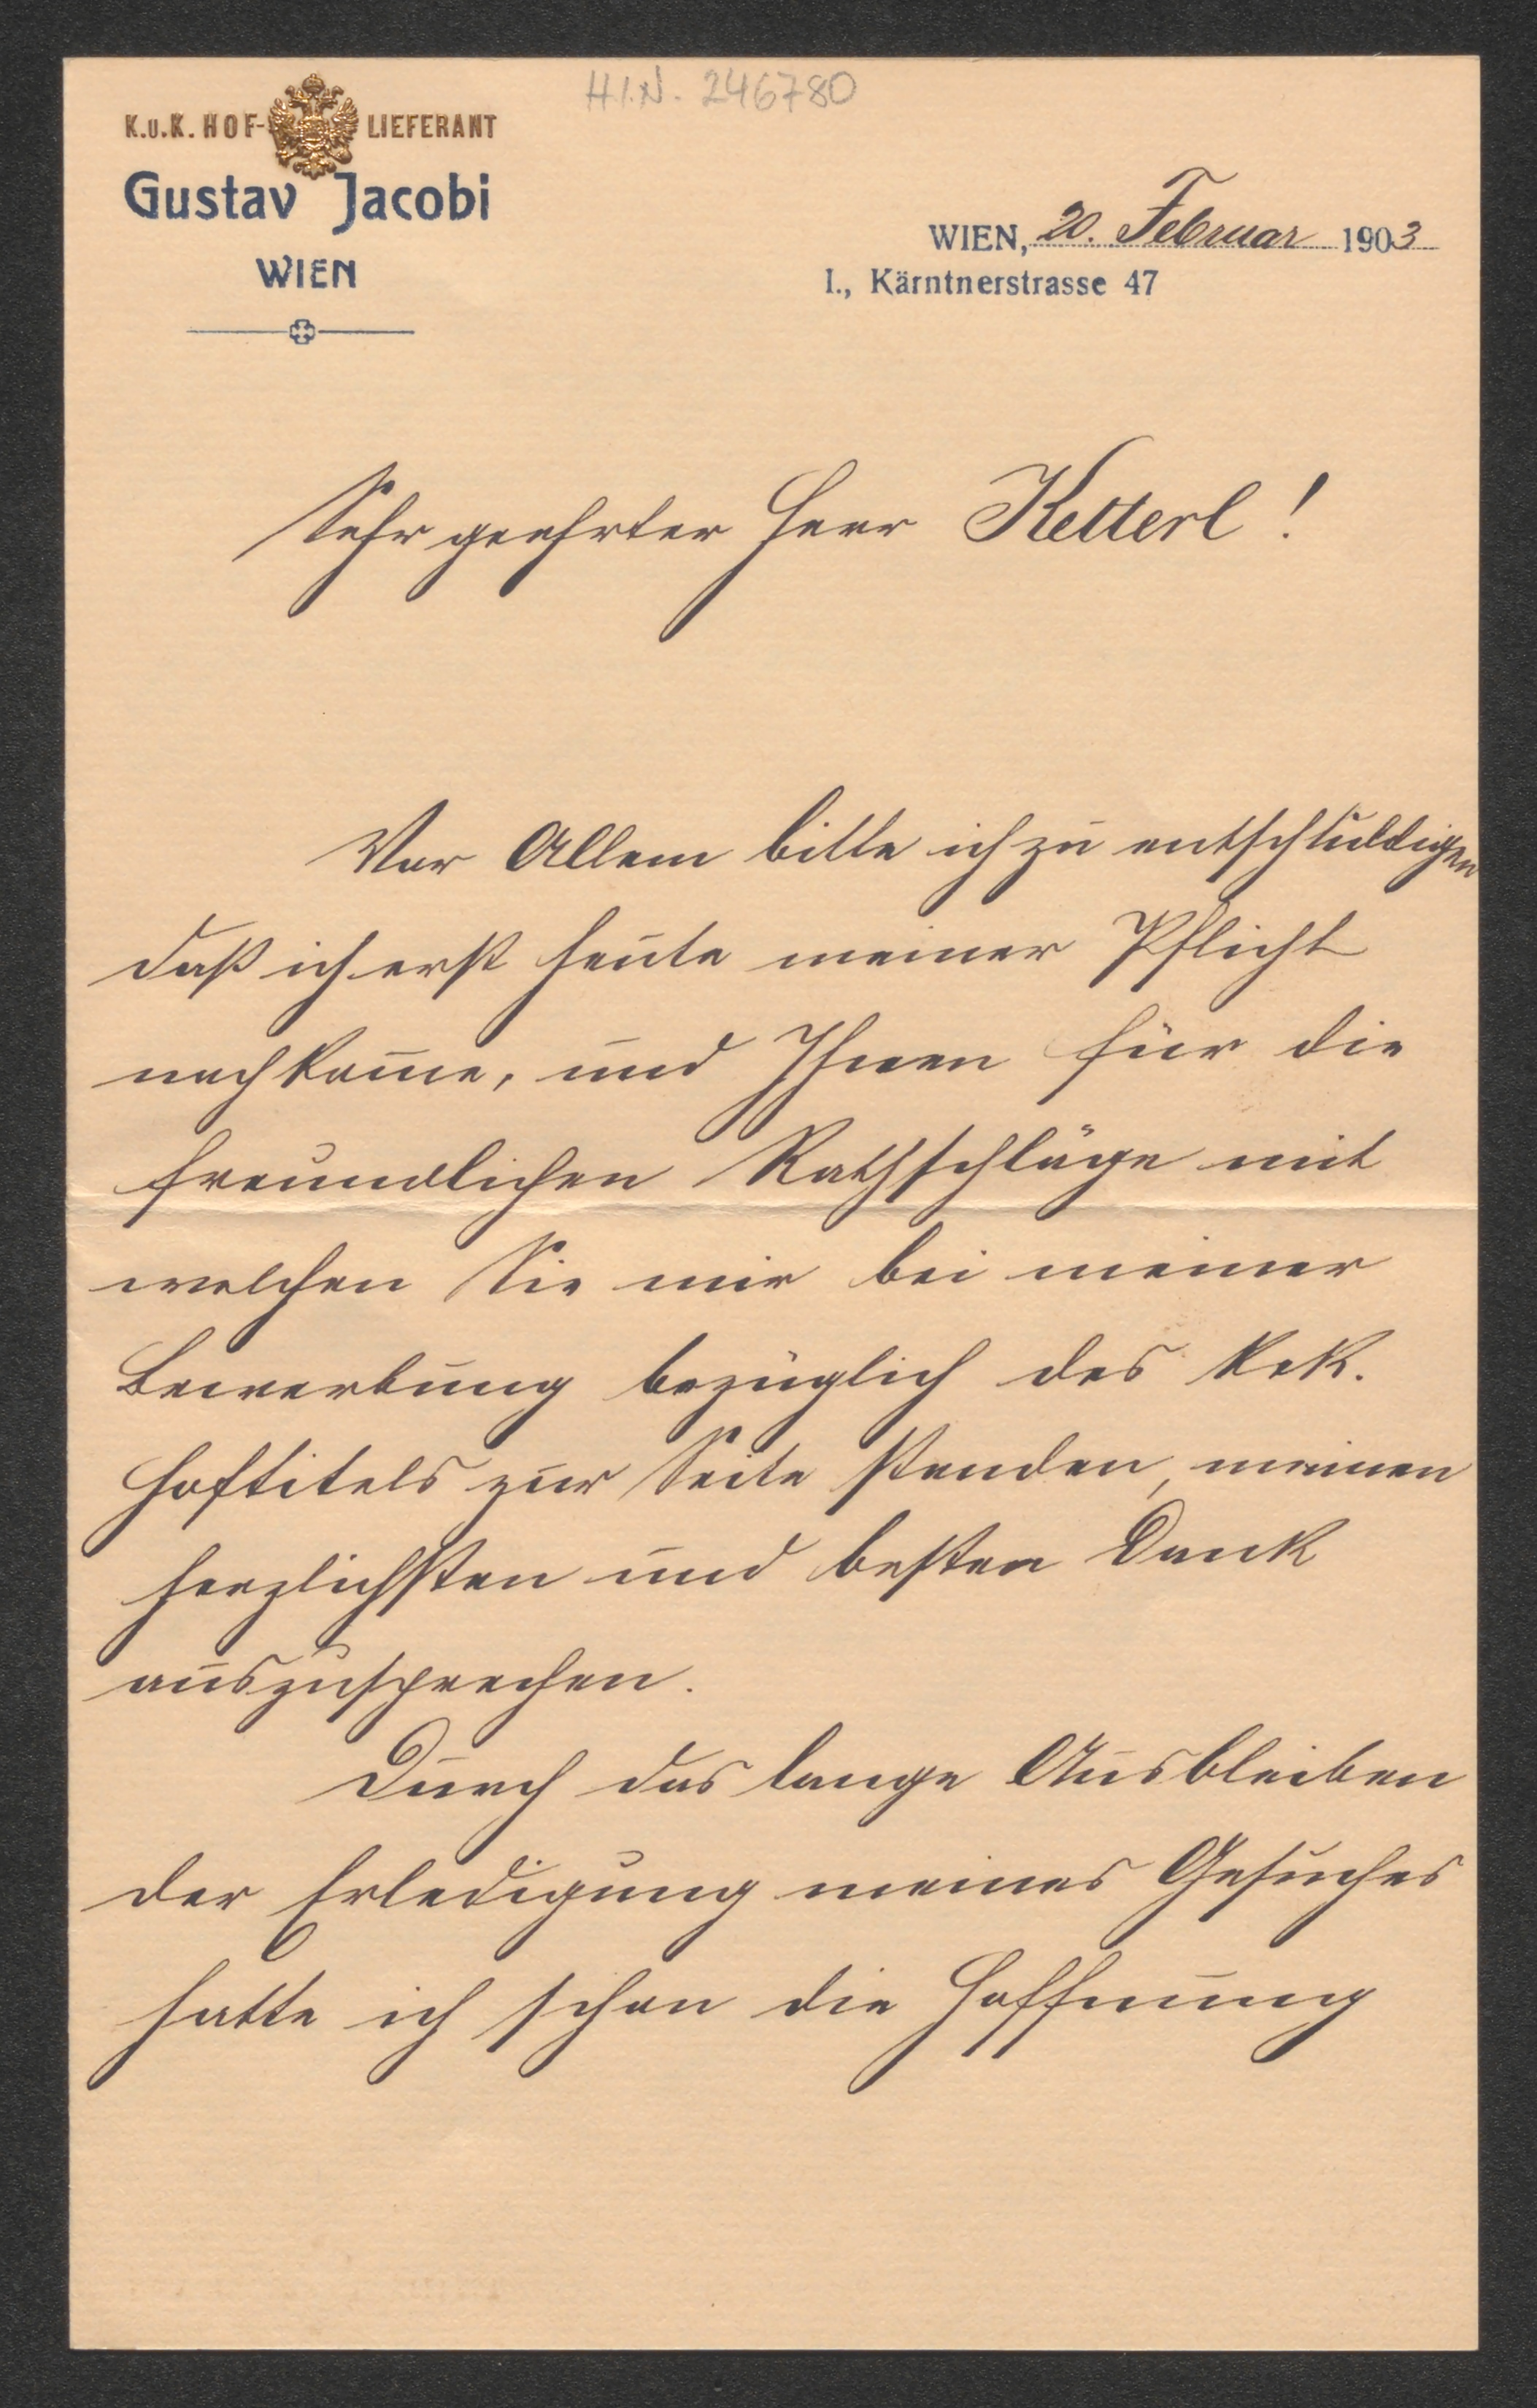 H.I.N. 246780
K.u.K. HOF-LIEFERANT
Gustav Jacobi
WIEN
WIEN, 20. Februar 1903
I., Kärntnerstrasse 47
Sehr geehrter Herr Ketterl!
Vor Allem bitte ich zu entschuldigen
daß ich erst heute meiner Pflicht
nachkom̅e, und Ihnen für die
freundlichen Rathschläge mit
welchen Sie mir bei meiner
Bewerbung bezüglich des k. k.
Hoftitels zur Seite standen, meinen
herzlichsten und besten Dank
auszusprechen.
Durch das lange Ausbleiben
der Erledigung meines Gesuches
hatte ich schon die Hoffnung